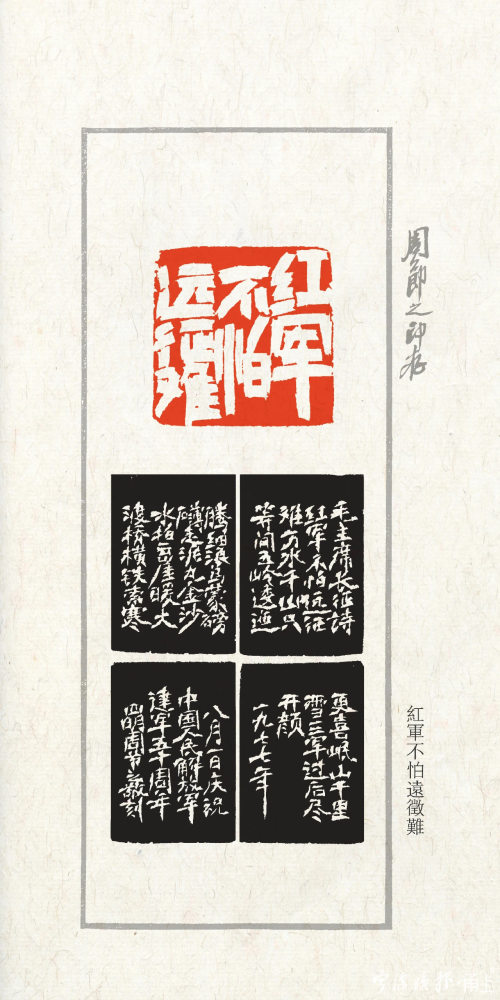 红军
不怕
远征难
周節之印存
毛主席长征詩
红军不怕远征
难万水千山只
等闲五岭逶迤
腾细浪乌蒙磅
礴走泥丸金沙
水拍云崖暖大
渡桥横铁索寒
更喜岷山千里
雪三军过后尽
开颜
一九七七年
八月一日庆祝
中国人民解放军
建军五十周年
四明周节之敬刻
紅軍不怕遠徵難